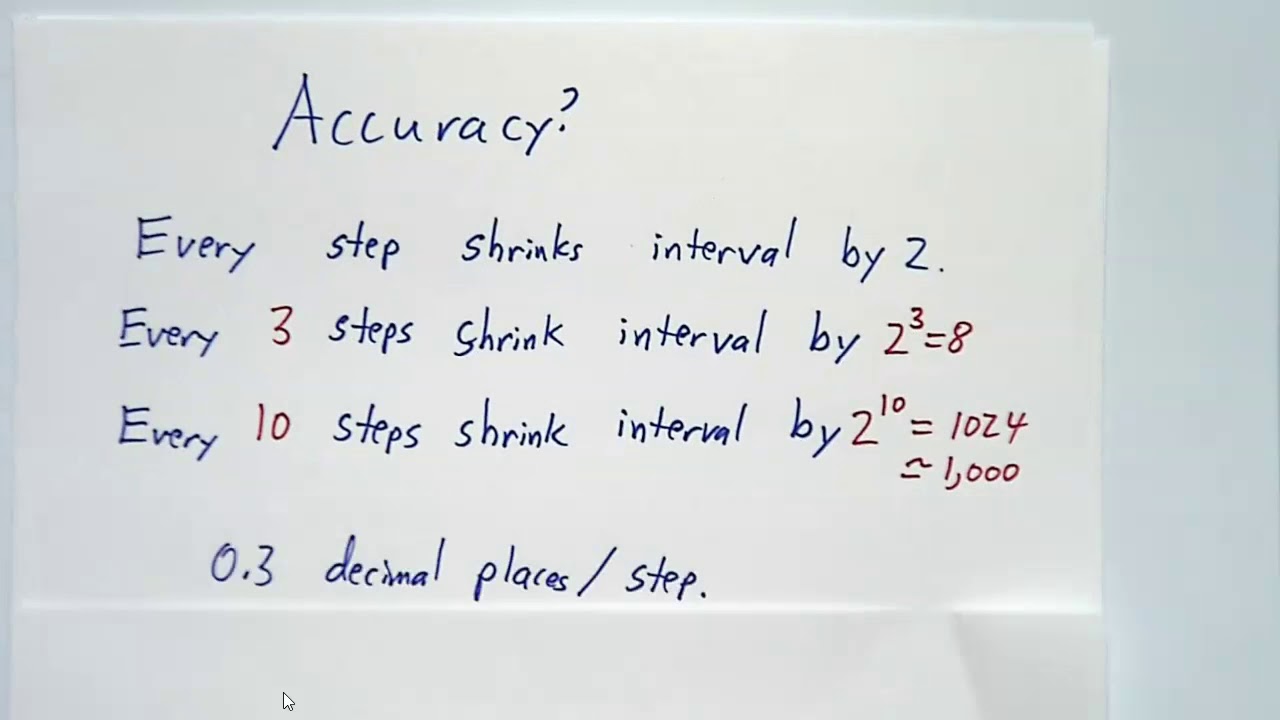 Accuracy?
Every step shrinks interval by 2.
Every 3 steps shrink interval by 2³=8
Every 10 steps shrink interval by 2¹⁰ = 1024
≃ 1,000
0.3 decimal places / step.